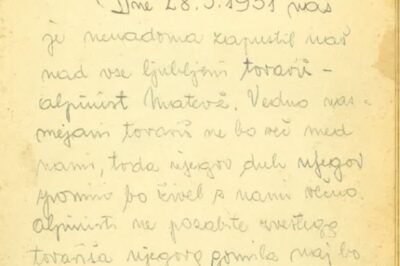 Dne 28.5.1951 nas
je nenadoma zapustil naš
nad vse ljubljeni tovariš –
alpinist Matevž. Vedno nas-
mejani tovariš ne bo več med
nami, toda njegov duh njegov
spomin bo živel z nami večno.
Alpinisti ne pozabite zvestega
tovariša njegova gomila naj bo